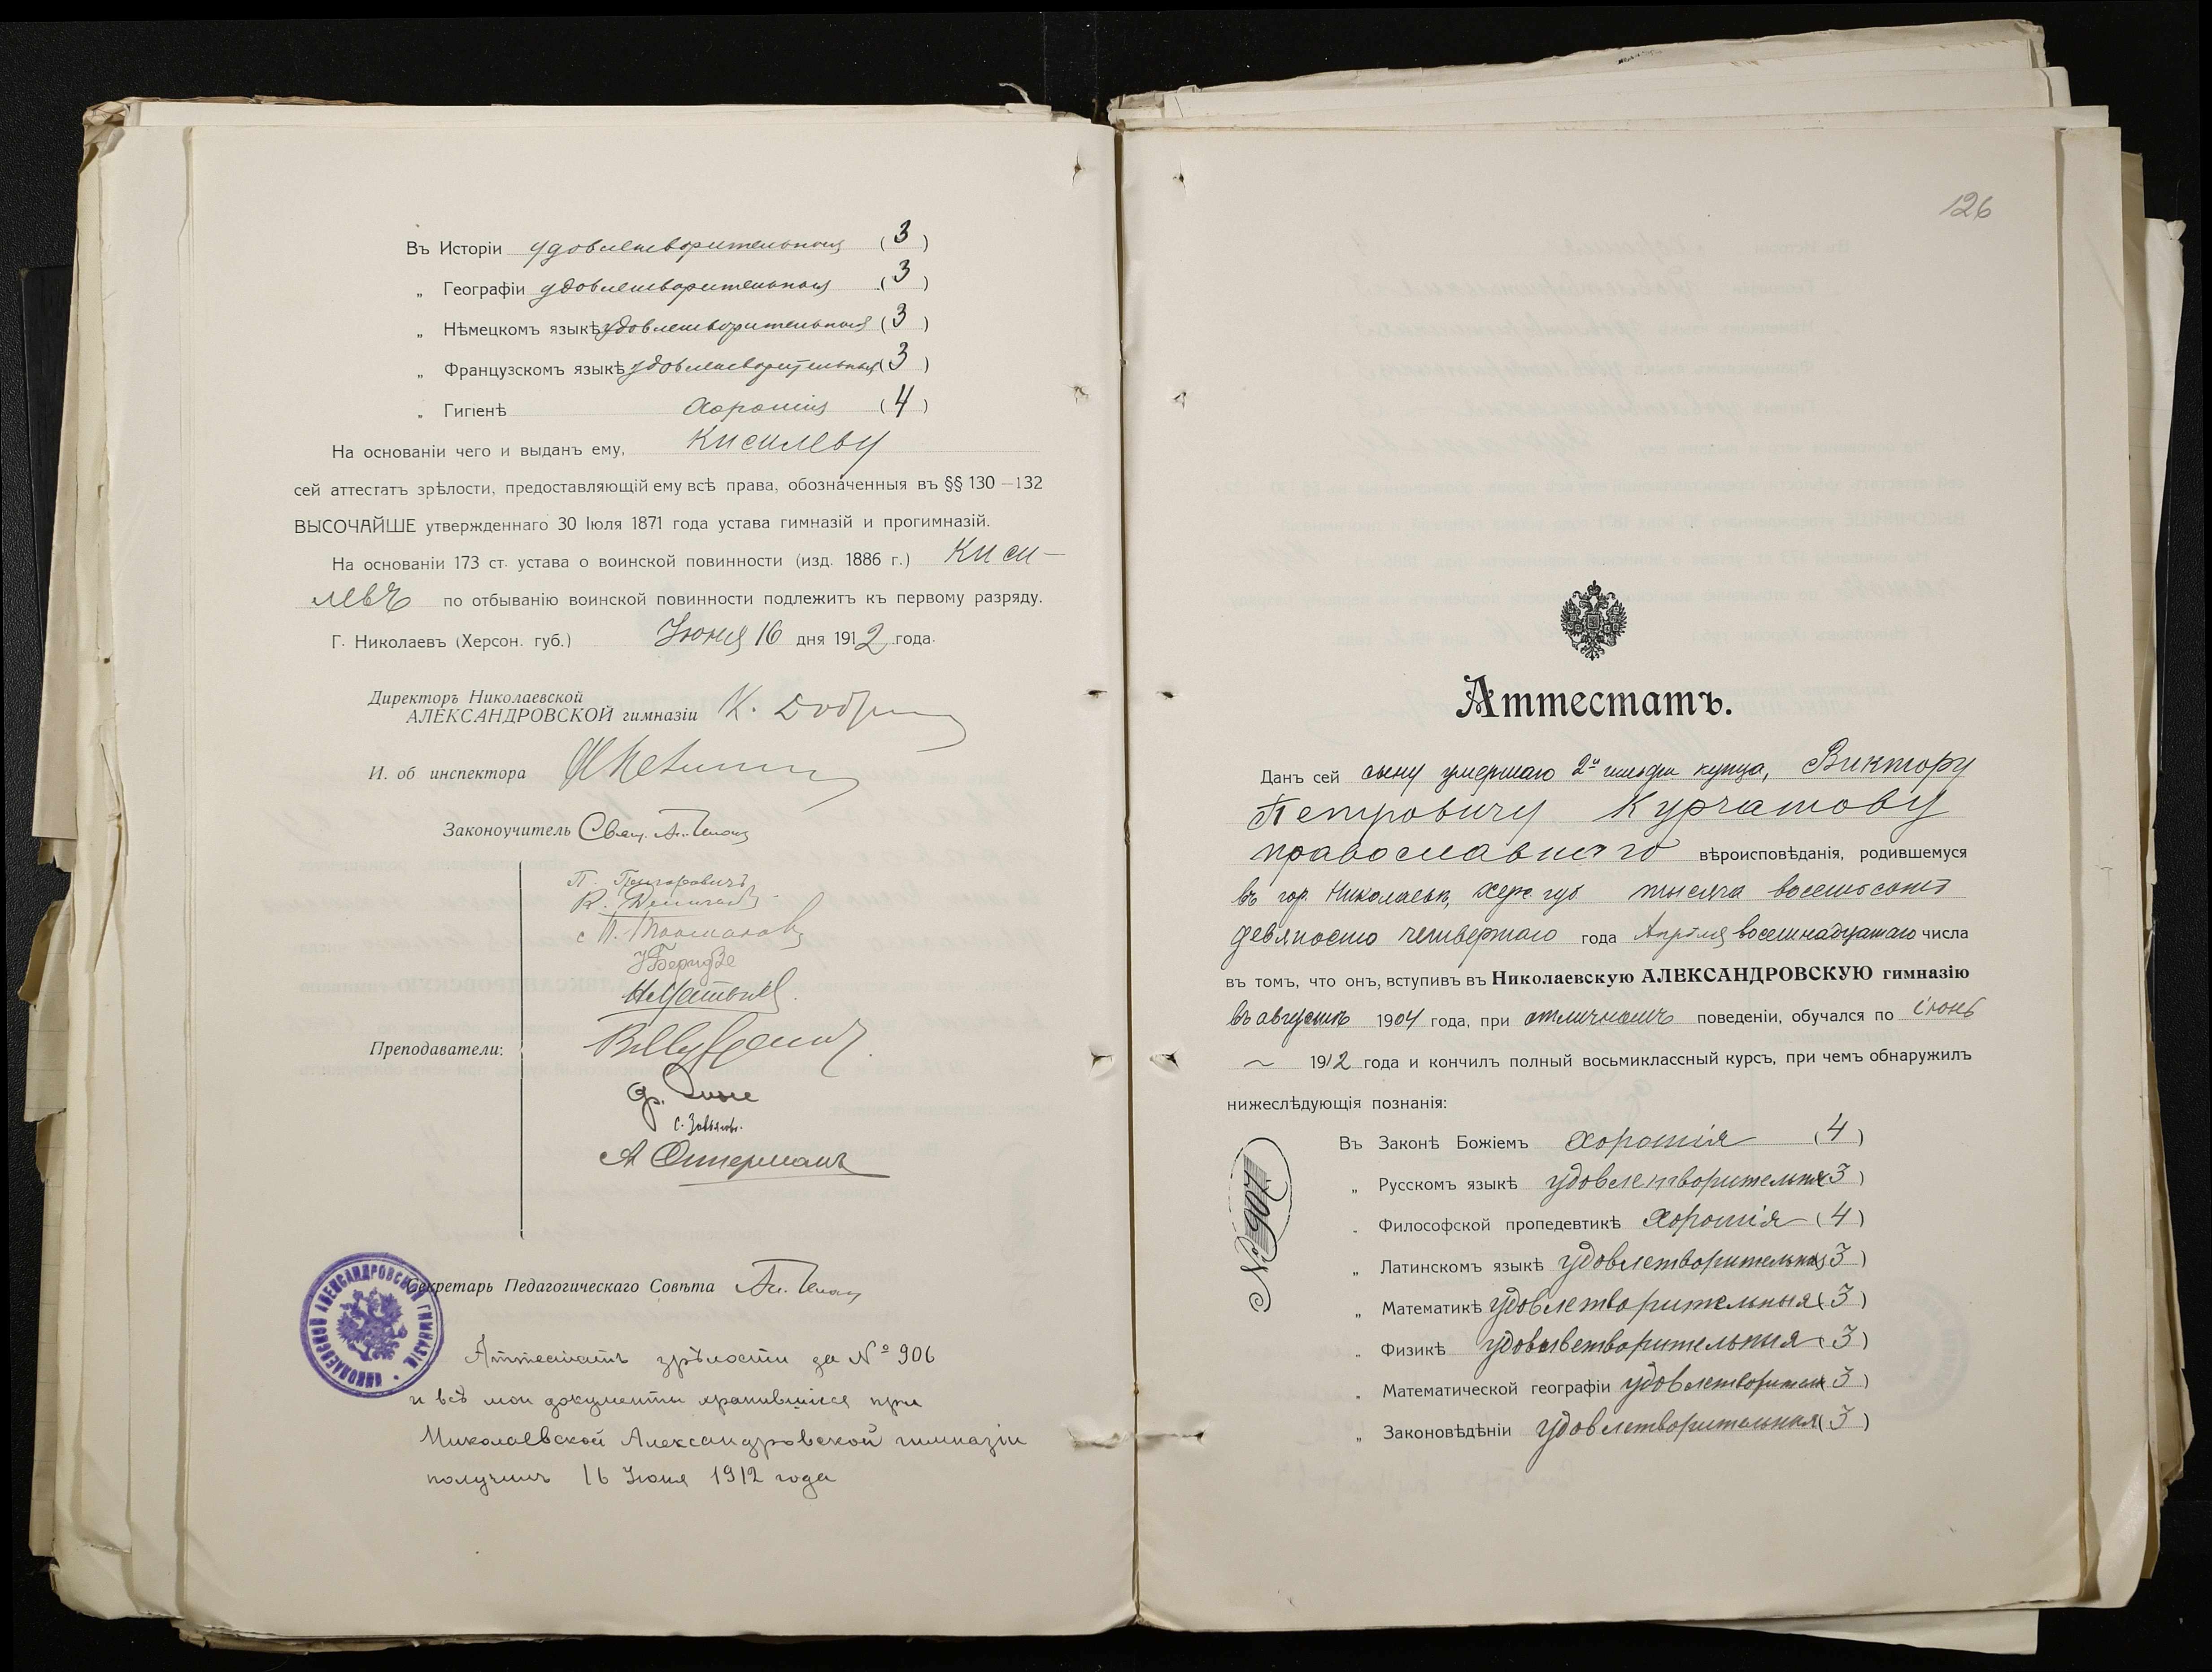 Въ Исторіи удовлетворительныя (3)
„ Географіи удовлетворительныя (3)
„ Нѣмецкомъ языкѣ удовлетворительныя (3)
„ Французскомъ языкѣ удовлетворительныя (3)
„ Гигіенѣ хорошія (4)
На основаніи чего и выданъ ему, Кисилеву
сей аттестатъ зрѣлости, предоставляющій ему всѣ права, обозначенныя въ §§ 130—132
ВЫСОЧАЙШЕ утвержденнаго 30 Іюля 1871 года устава гимназій и прогимназій.
На основаніи 173 ст. устава о воинской повинности (изд. 1886 г.) Киси-
левъ по отбыванію воинской повинности подлежитъ къ первому разряду.
Г. Николаевъ (Херсон. губ.) Іюня 16 дня 1912 года.
Директоръ Николаевской
АЛЕКСАНДРОВСКОЙ гимназіи К.
И. об инспектора
Законоучитель Свящ. Ал.
П. Григоровичъ
Преподаватели:
С. Завьялов.
Секретарь Педагогическаго Совѣта Ал.
НИКОЛАЕВСКОЙ АЛЕКСАНДРОВСКОЙ ГИМНАЗІИ
Аттестатъ зрѣлости за № 906
и всѣ мои документы хранившіеся при
Николаевской Александровской гимназіи
получилъ 16 Іюня 1912 года
126
Аттестатъ.
Данъ сей сыну умершаго 2й гильдіи купца, Виктору
Петровичу Курчатову
православнаго вѣроисповѣданія, родившемуся
въ гор. Николаевѣ, Херс. губ. тысяча восемьсотъ
девяносто четвертаго года Апрѣля восемнадцатаго числа
въ томъ, что онъ, вступивъ въ Николаевскую АЛЕКСАНДРОВСКУЮ гимназію
въ августѣ 1904 года, при отличномъ поведеніи, обучался по іюнь
1912 года и кончилъ полный восьмиклассный курсъ, при чемъ обнаружилъ
нижеслѣдующія познанія:
№ 907.
Въ Законѣ Божіемъ хорошія (4)
„ Русскомъ языкѣ удовлетворительныя (3)
„ Философской пропедевтикѣ хорошія (4)
„ Латинскомъ языкѣ удовлетворительныя (3)
„ Математикѣ удовлетворительныя (3)
„ Физикѣ удовлетворительныя (3)
„ Математической географіи удовлетворительн (3)
„ Законовѣдѣніи удовлетворительныя (3)